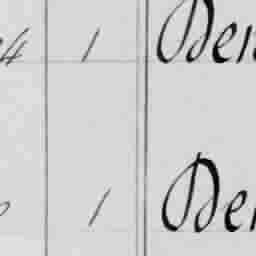 4 1 Den
1 Den